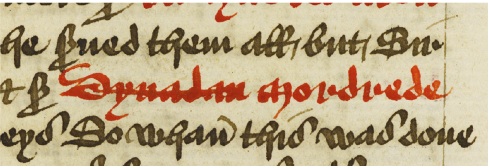 he sued them all, but Sir
t sir Dynadan Mordrede
eys So whan this was done